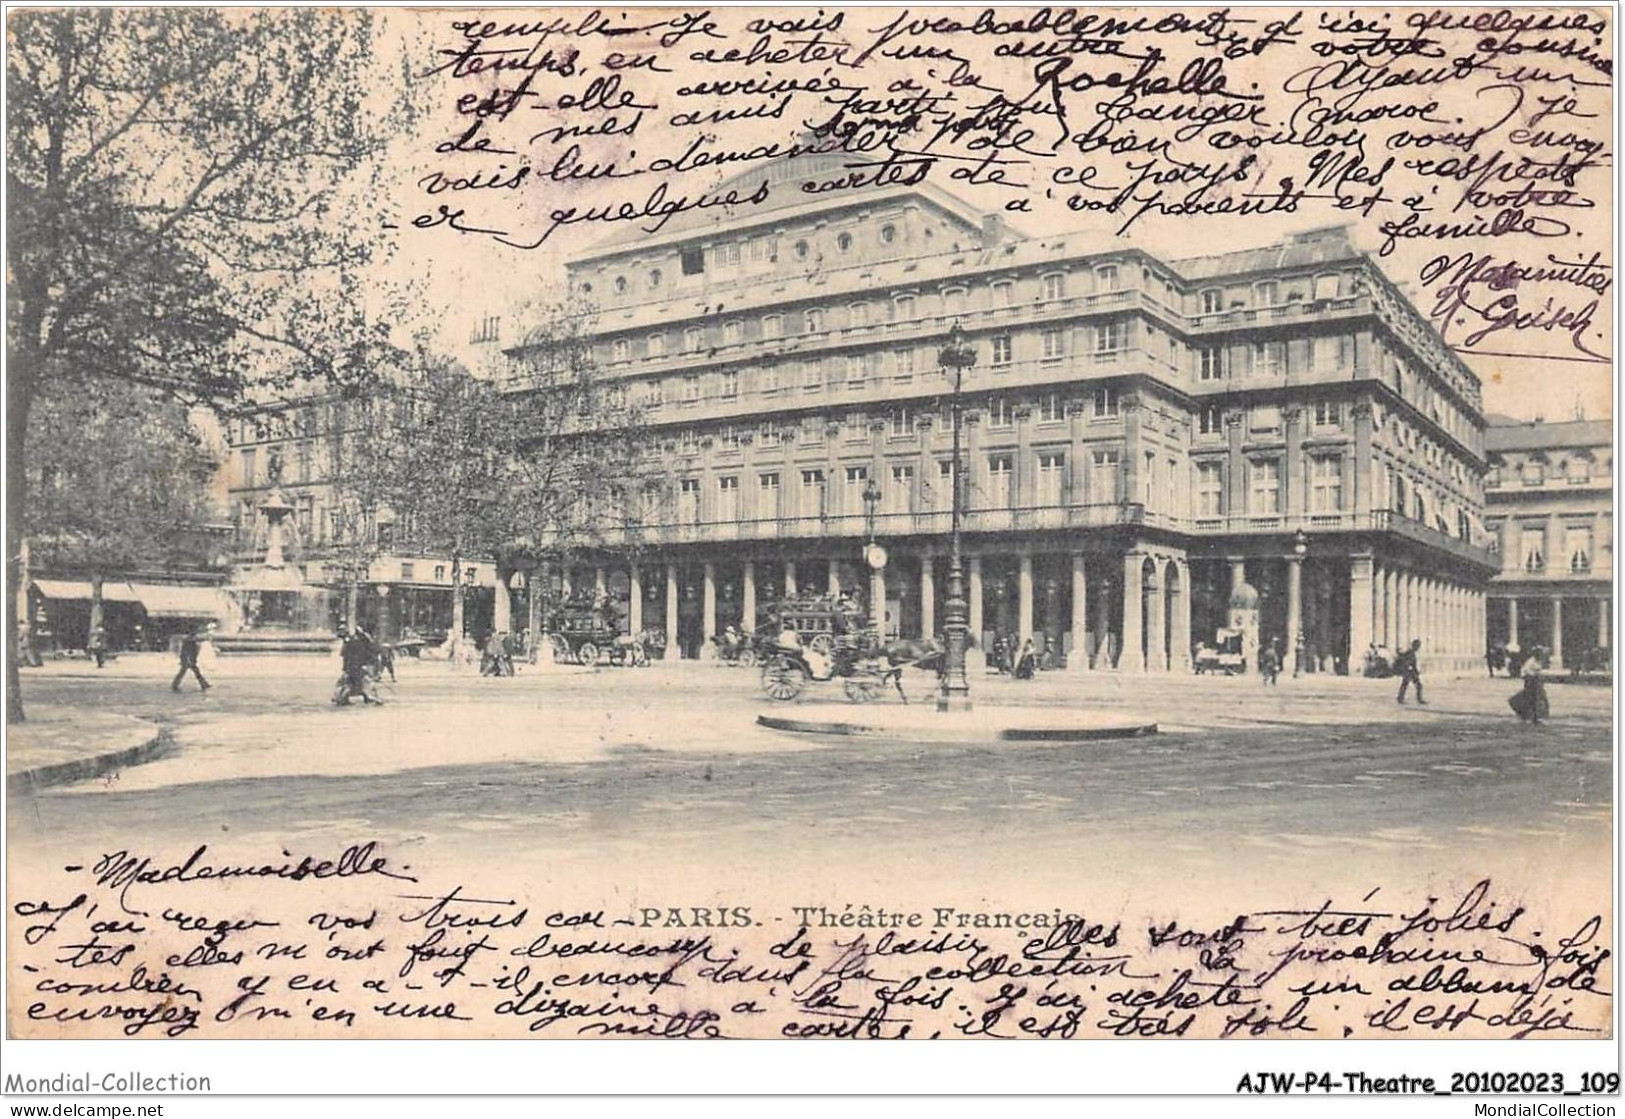 remplie. Je vais probablement, d'ici quelques
temps, en acheter un autre. Et votre cousine
est-elle arrivée à la Rochelle. Ayant un
de mes amis parti pour Tanger (Maroc.) je
vais lui demander de bon vouloir vous envoy-
er quelques cartes de ce pays. Mes respects
à vos parents et à votre
famille.
- Mademoiselle.
J'ai reçu vos trois car-
PARIS. - Théâtre Français
tes, elles m'ont fait beaucoup de plaisir, elles sont très jolies.
combien y en a-t-il encore dans la collection. La prochaine fois
envoyez m'en une dizaine à la fois. J'ai acheté un album de
mille cartes, il est très joli, il est déjà
Mondial-Collection
AJW-P4-Theatre_20102023_109
www.delcampe.net
MondialCollection